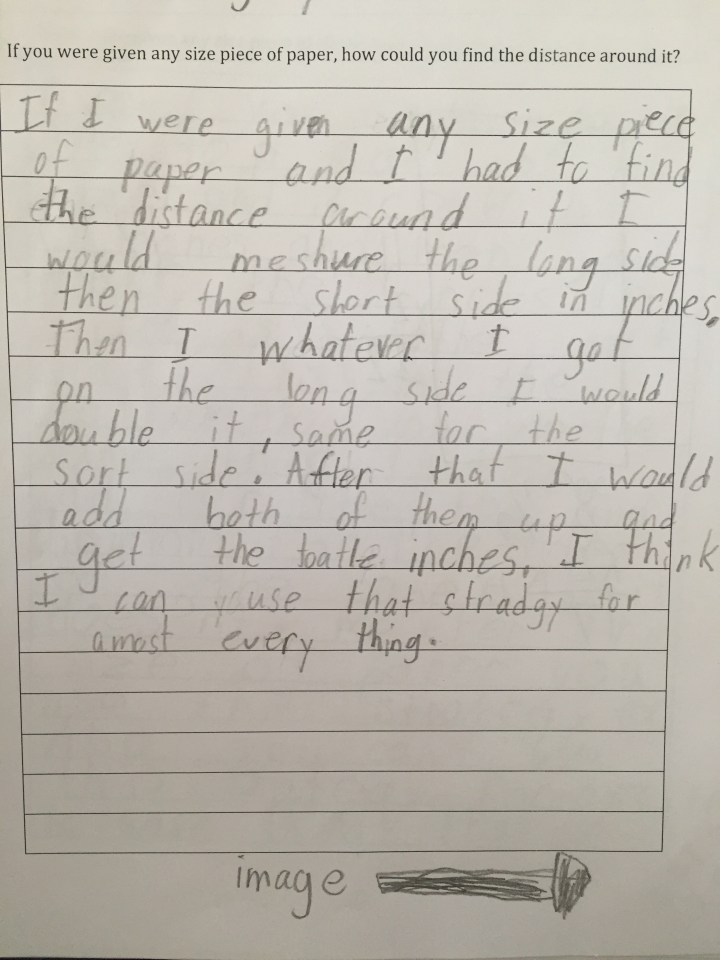 If you were given any size piece of paper, how could you find the distance around it?
If I were given any size piece
of paper and I had to find
the distance around it I
would meshure the long side
then the short side in inches.
Then I whatever I got
on the long side I would
double it, same for the
sort side. After that I would
add both of them up and
get the toatle inches. I think
I can use that stradgy for
amost every thing.
image